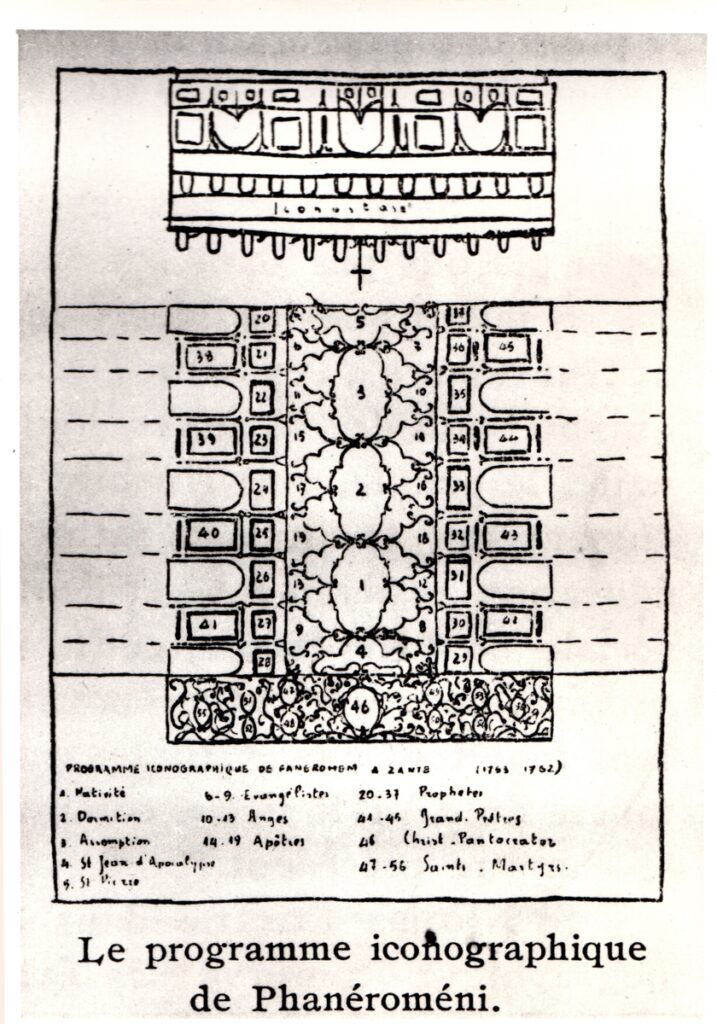 Iconostase
20 5 37
38 21 6 7 36 45
22 11 3 10 35
39 23 15 14 34 44
24 17 2 16 33
40 25 19 18 32 43
26 13 1 12 31
41 27 9 8 30 42
28 4 29
46
PROGRAMME ICONOGRAPHIQUE DE FANEROMEM A ZANTE (1753 1762)
1. Nativité 6-9. Evangélistes 20-37 Prophetes
2. Dormition 10-13 Anges 41-45 Grand. Prêtres
3. Assomption 14-19 Apôtres 46 Christ-Pantocrator
4. St Jean d'Apocalypse 47-56 Saints-Martyrs.
5. St Pierre
Le programme iconographique
de Phanéroméni.